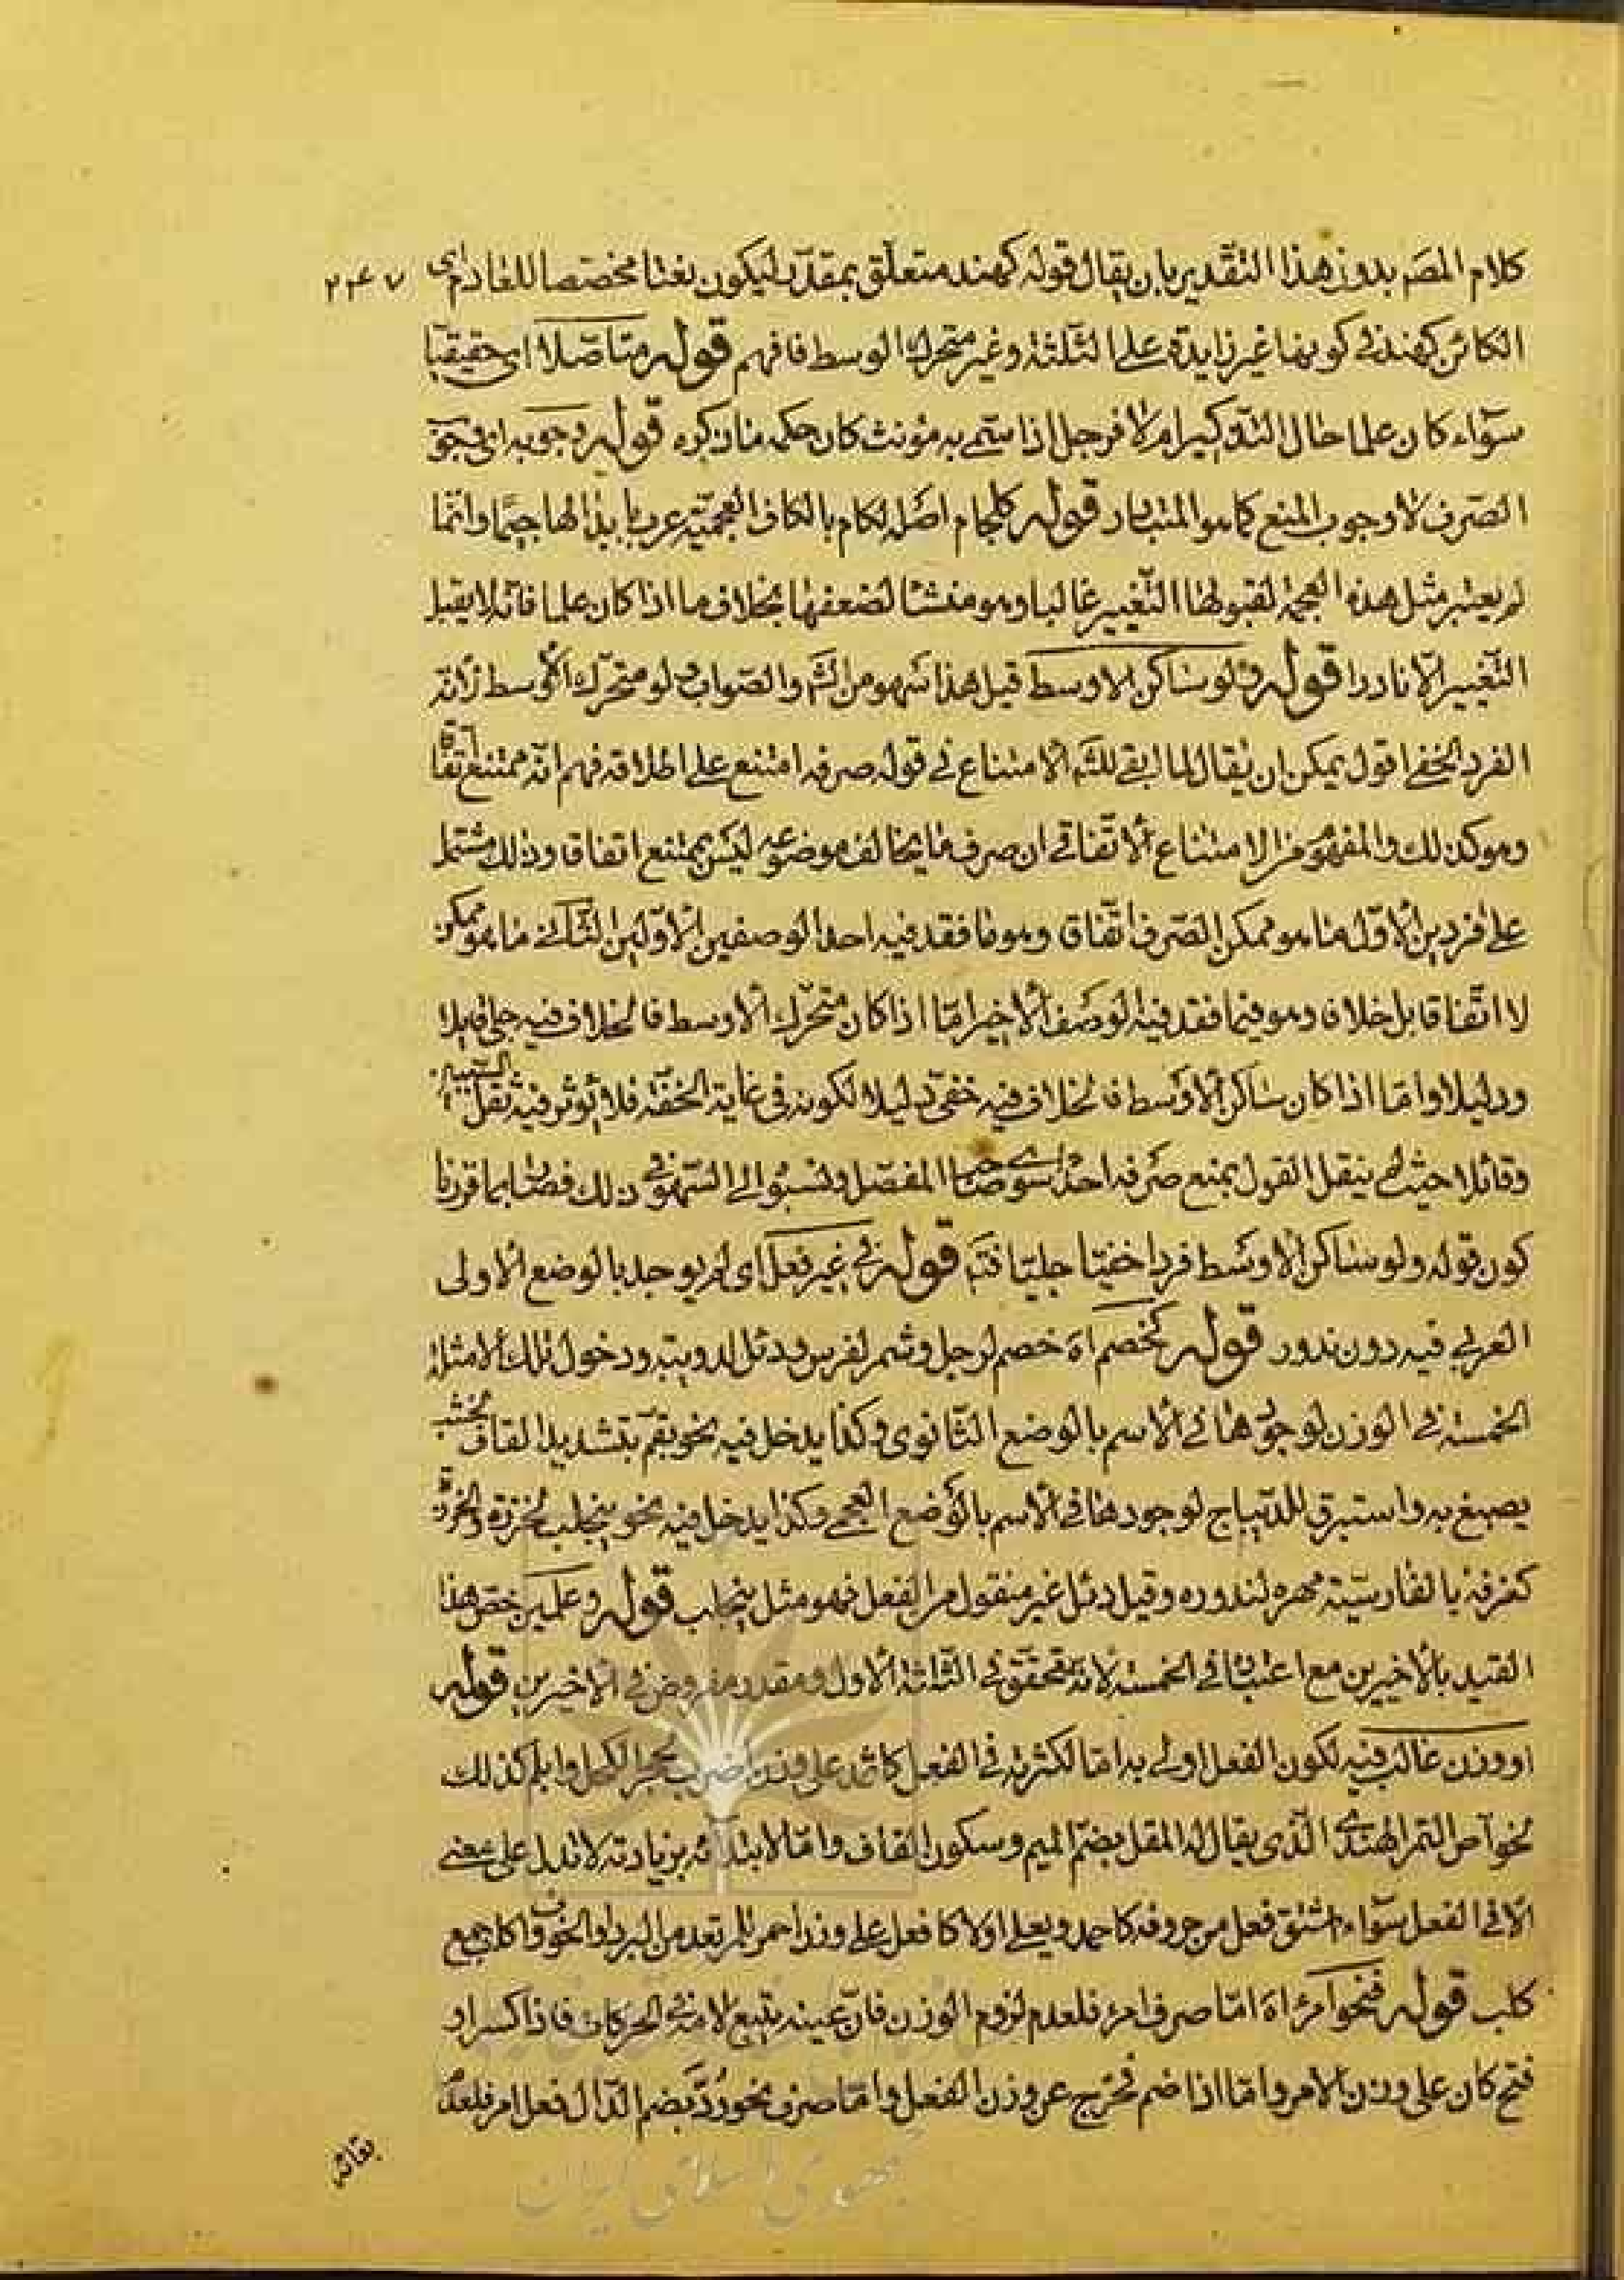 كلام المصم بدون هذا التقدير بان يقال قوله كهند متعلق بمقدر ليكون نعتا مخصصا للعادم اى
٢٤٧
الكائن كهند فى كونها غير زايدة على الثلثة وغير متحرك الوسط فافهم قوله متاصلا اى حقيقيا
سوآء كان علما حال التذكير ام لا فرجل اذا سمى به مؤنث كان حكمه ما ذكره قوله وجوبه اى وجوب
الصرف لا وجوب المنع كما هو المتبادر قوله كلجام اصله لكام بالكاف العجمية عرب بابدالها جيما وانما
لم يعتبر مثل هذه العجمة لقبولها التغيير غالبا وهو منشا لضعفها بخلاف ما اذا كان علما فانه لا يقبل
التغيير الا نادرا قوله ولو ساكن الاوسط قيل هذا سهو من الشم والصواب ولو متحرك الاوسط لانه
الفرد الخفى اقول يمكن ان يقال لما ابقى للشم الامتناع فى قوله صرفه امتنع على اطلاقه فهم انه ممتنع اتفاقا
وهو كذلك والمفهوم من الامتناع الاتفاقى ان صرف ما يخالف موضوعه ليس بممتنع اتفاقا وذلك مشتمل
على فردين الاول ما هو ممكن الصرف اتفاق وهو ما فقد فيه احد الوصفين الاولين الثانى ما هو ممكن
لا اتفاقا بل خلاف وهو فيما فقد فيه الوصف الاخير اما اذا كان متحرك الاوسط فالخلاف فيه جلى قابلا
ودليلا واما اذا كان ساكن الاوسط فالخلاف فيه خفى دليلا لكونه فى غاية الخفة فلا يؤثر فيه ثقل السببين
وقائلا حيث لم ينقل القول بمنع صرفه احد سوى صاحب المفصل ونسبوا الى السهو فى ذلك فصار بما قررنا
كون قوله ولو ساكن الاوسط فردا خفيا جليا فتم قوله فى غير فعل اى لم يوجد بالوضع الاولى
العربى فيه دون ندور قوله كخصم اه خصم لرجل وشمر لفرس ودئل لدويبة ودخول تلك الامثلة
الخمسة فى الوزن لوجودها فى الاسم بالوضع الثانوى وكذا يدخل فيه نحو بقم بتشديد القاف لخشب
يصبغ به واستبرق للديباج لوجودها فى الاسم بالوضع العجمى وكذا يدخل فيه نحو ينجلب لخرزة والخرزة
كغرفة بالفارسية مهره لندوره وقيل دئل غير منقول من الفعل فهو مثل ينجلب قوله وعلمين خص هذا
القيد بالاخيرين مع اعتباره فى الخمسة لانه متحقق فى الثلثة الاول ومقدر مفروض فى الاخيرين قوله
او وزن غالب فيه لكون الفعل اولى به اما لكثرته فى الفعل كاثمد على وزن اضرب لحجر الكحل وابلم كذلك
لخوص التمر الهندى الذى يقال له المقل بضم الميم وسكون القاف واما لابتدائه بزيادة لا تدل على معنى
الا فى الفعل سوآء اشتق فعل من حروفه كاحمد ويعلى او لا كافكل على وزن احمر للمرتعد من البرد او الخوف واكلب جمع
كلب قوله فنحو امرؤ اه اما صرف امرؤ فلعدم لزوم الوزن فان عينه يتبع لامه فى الحركات فاذا كسر او
فتح كان على وزن الامر واما اذا ضم فخرج عن وزن الفعل واما صرف نحو رد بضم الدال فعل امر فلعدم
بقائه
جمهوری اسلامی ایران